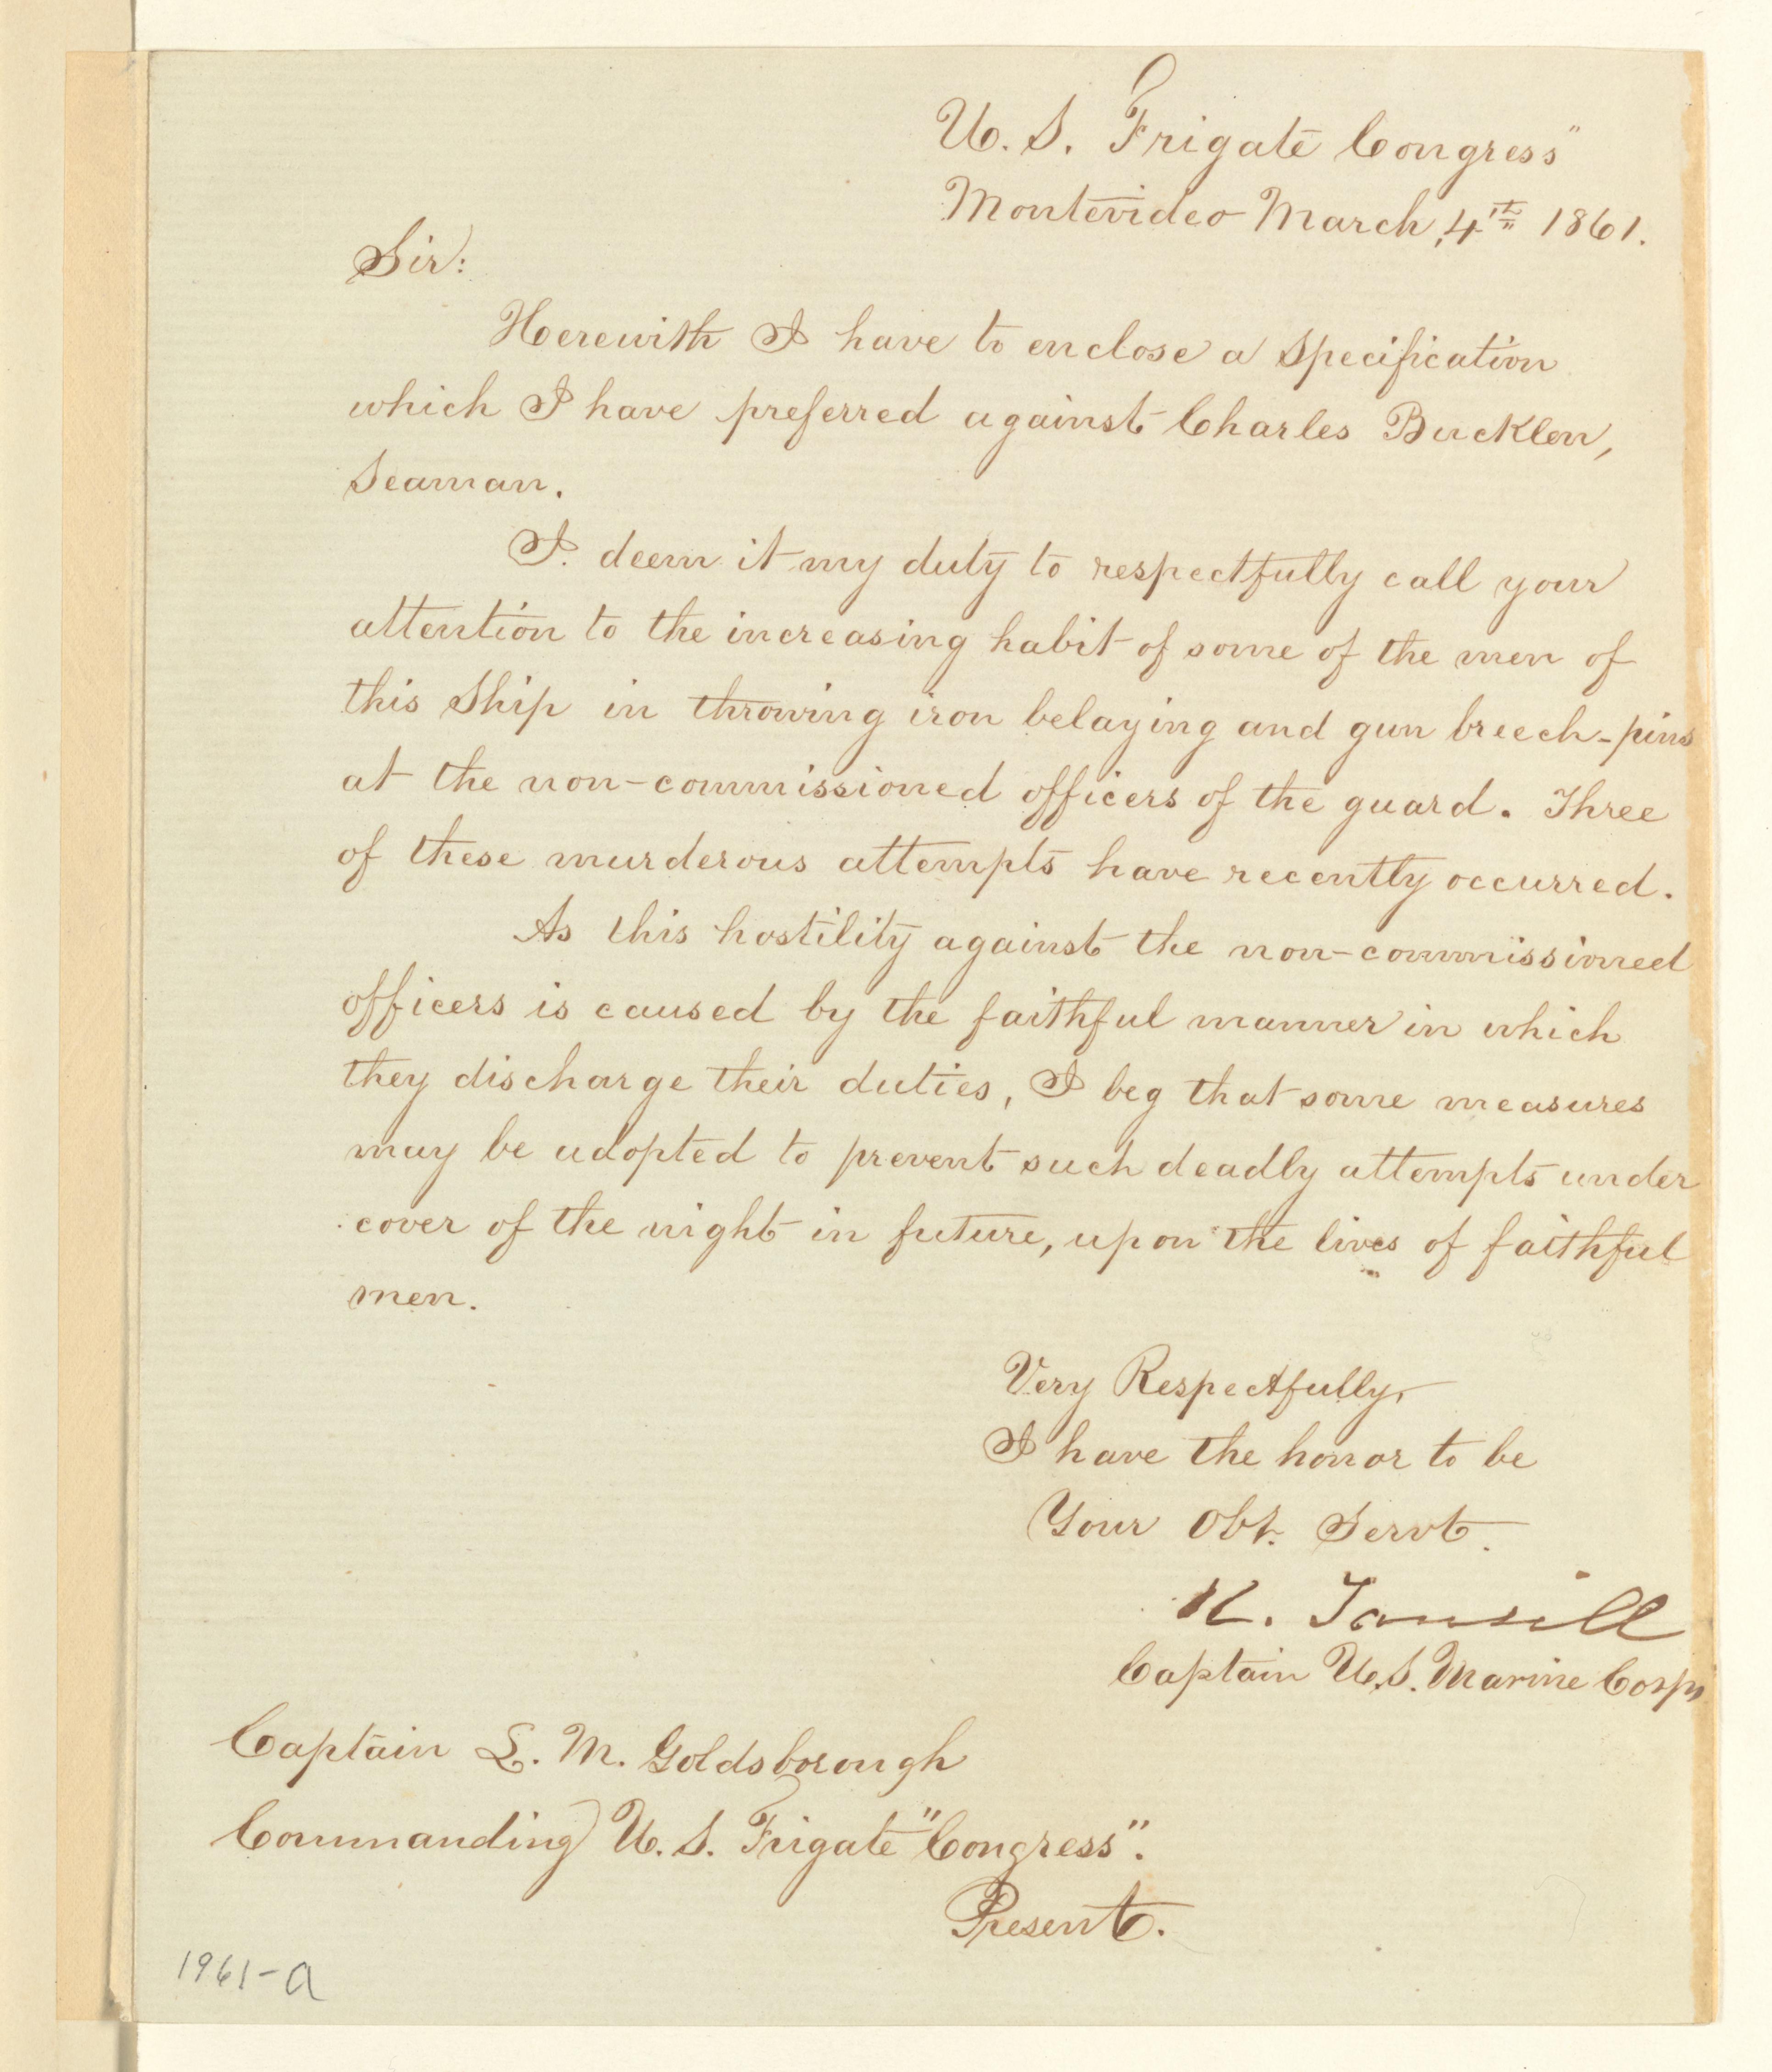 U. S. Frigate Congress"
Montevideo March, 4th 1861.
Sir:
Herewith I have to enclose a Specification
which I have preferred against Charles Bucklen,
Seaman.
I deem it my duty to respectfully call your
attention to the increasing habit of some of the men of
this Ship in throwing iron belaying and gun breech-pins
at the non-commissioned officers of the guard. Three
of these murderous attempts have recently occurred.
As this hostility against the non-commissioned
officers is caused by the faithful manner in which
they discharge their duties, I beg that some measures
may be adopted to prevent such deadly attempts under
cover of the night in future, upon the lives of faithful
men.
Very Respectfully,
I have the honor to be
Your Obt. Servt.
R. Tansill
Captain U.S. Marine Corps
Captain L. M. Goldsborough
Commanding U. S. Frigate "Congress".
Present.
1961-a